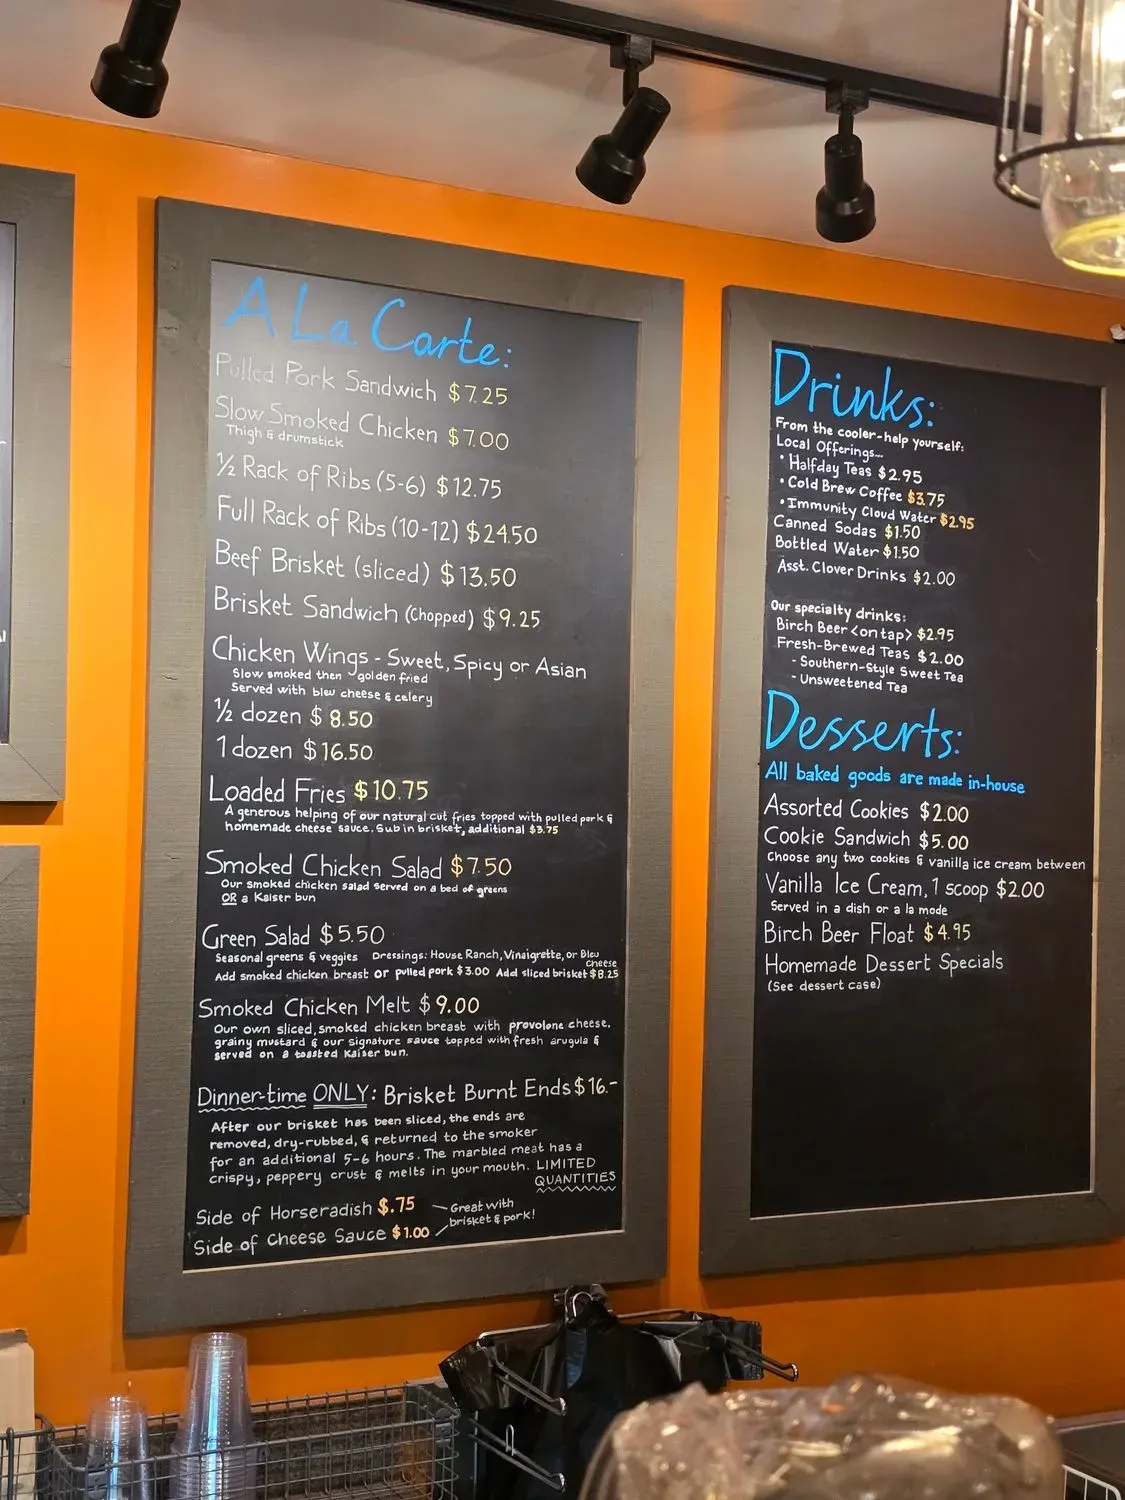 A La Carte:
Pulled Pork Sandwich $7.25
Slow Smoked Chicken $7.00
Thigh & drumstick
½ Rack of Ribs (5-6) $12.75
Full Rack of Ribs (10-12) $24.50
Beef Brisket (sliced) $13.50
Brisket Sandwich (Chopped) $9.25
Chicken Wings - Sweet, Spicy or Asian
Slow smoked then golden fried
Served with bleu cheese & celery
½ dozen $8.50
1 dozen $16.50
Loaded Fries $10.75
A generous helping of our natural cut fries topped with pulled pork &
homemade cheese sauce. Sub in brisket, additional $3.75
Smoked Chicken Salad $7.50
Our smoked chicken salad served on a bed of greens
OR a Kaiser bun
Green Salad $5.50
Seasonal greens & veggies Dressings: House Ranch, Vinaigrette, or Bleu
Cheese
Add smoked chicken breast or pulled pork $3.00 Add sliced brisket $8.25
Smoked Chicken Melt $9.00
Our own sliced, smoked chicken breast with provolone cheese,
grainy mustard & our signature sauce topped with fresh arugula &
served on a toasted Kaiser bun.
Dinner-time ONLY: Brisket Burnt Ends $16.-
After our brisket has been sliced, the ends are
removed, dry-rubbed, & returned to the smoker
for an additional 5-6 hours. The marbled meat has a
crispy, peppery crust & melts in your mouth. LIMITED
QUANTITIES
Side of Horseradish $.75
Side of Cheese Sauce $1.00
Great with
brisket & pork!
Drinks:
From the cooler-help yourself:
Local Offerings...
• Halfday Teas $2.95
• Cold Brew Coffee $3.75
• Immunity Cloud Water $2.95
Canned Sodas $1.50
Bottled Water $1.50
Asst. Clover Drinks $2.00
Our specialty drinks:
Birch Beer <on tap> $2.95
Fresh-Brewed Teas $2.00
- Southern-Style Sweet Tea
- Unsweetened Tea
Desserts:
All baked goods are made in-house
Assorted Cookies $2.00
Cookie Sandwich $5.00
Choose any two cookies & vanilla ice cream between
Vanilla Ice Cream, 1 scoop $2.00
Served in a dish or a la mode
Birch Beer Float $4.95
Homemade Dessert Specials
(See dessert case)